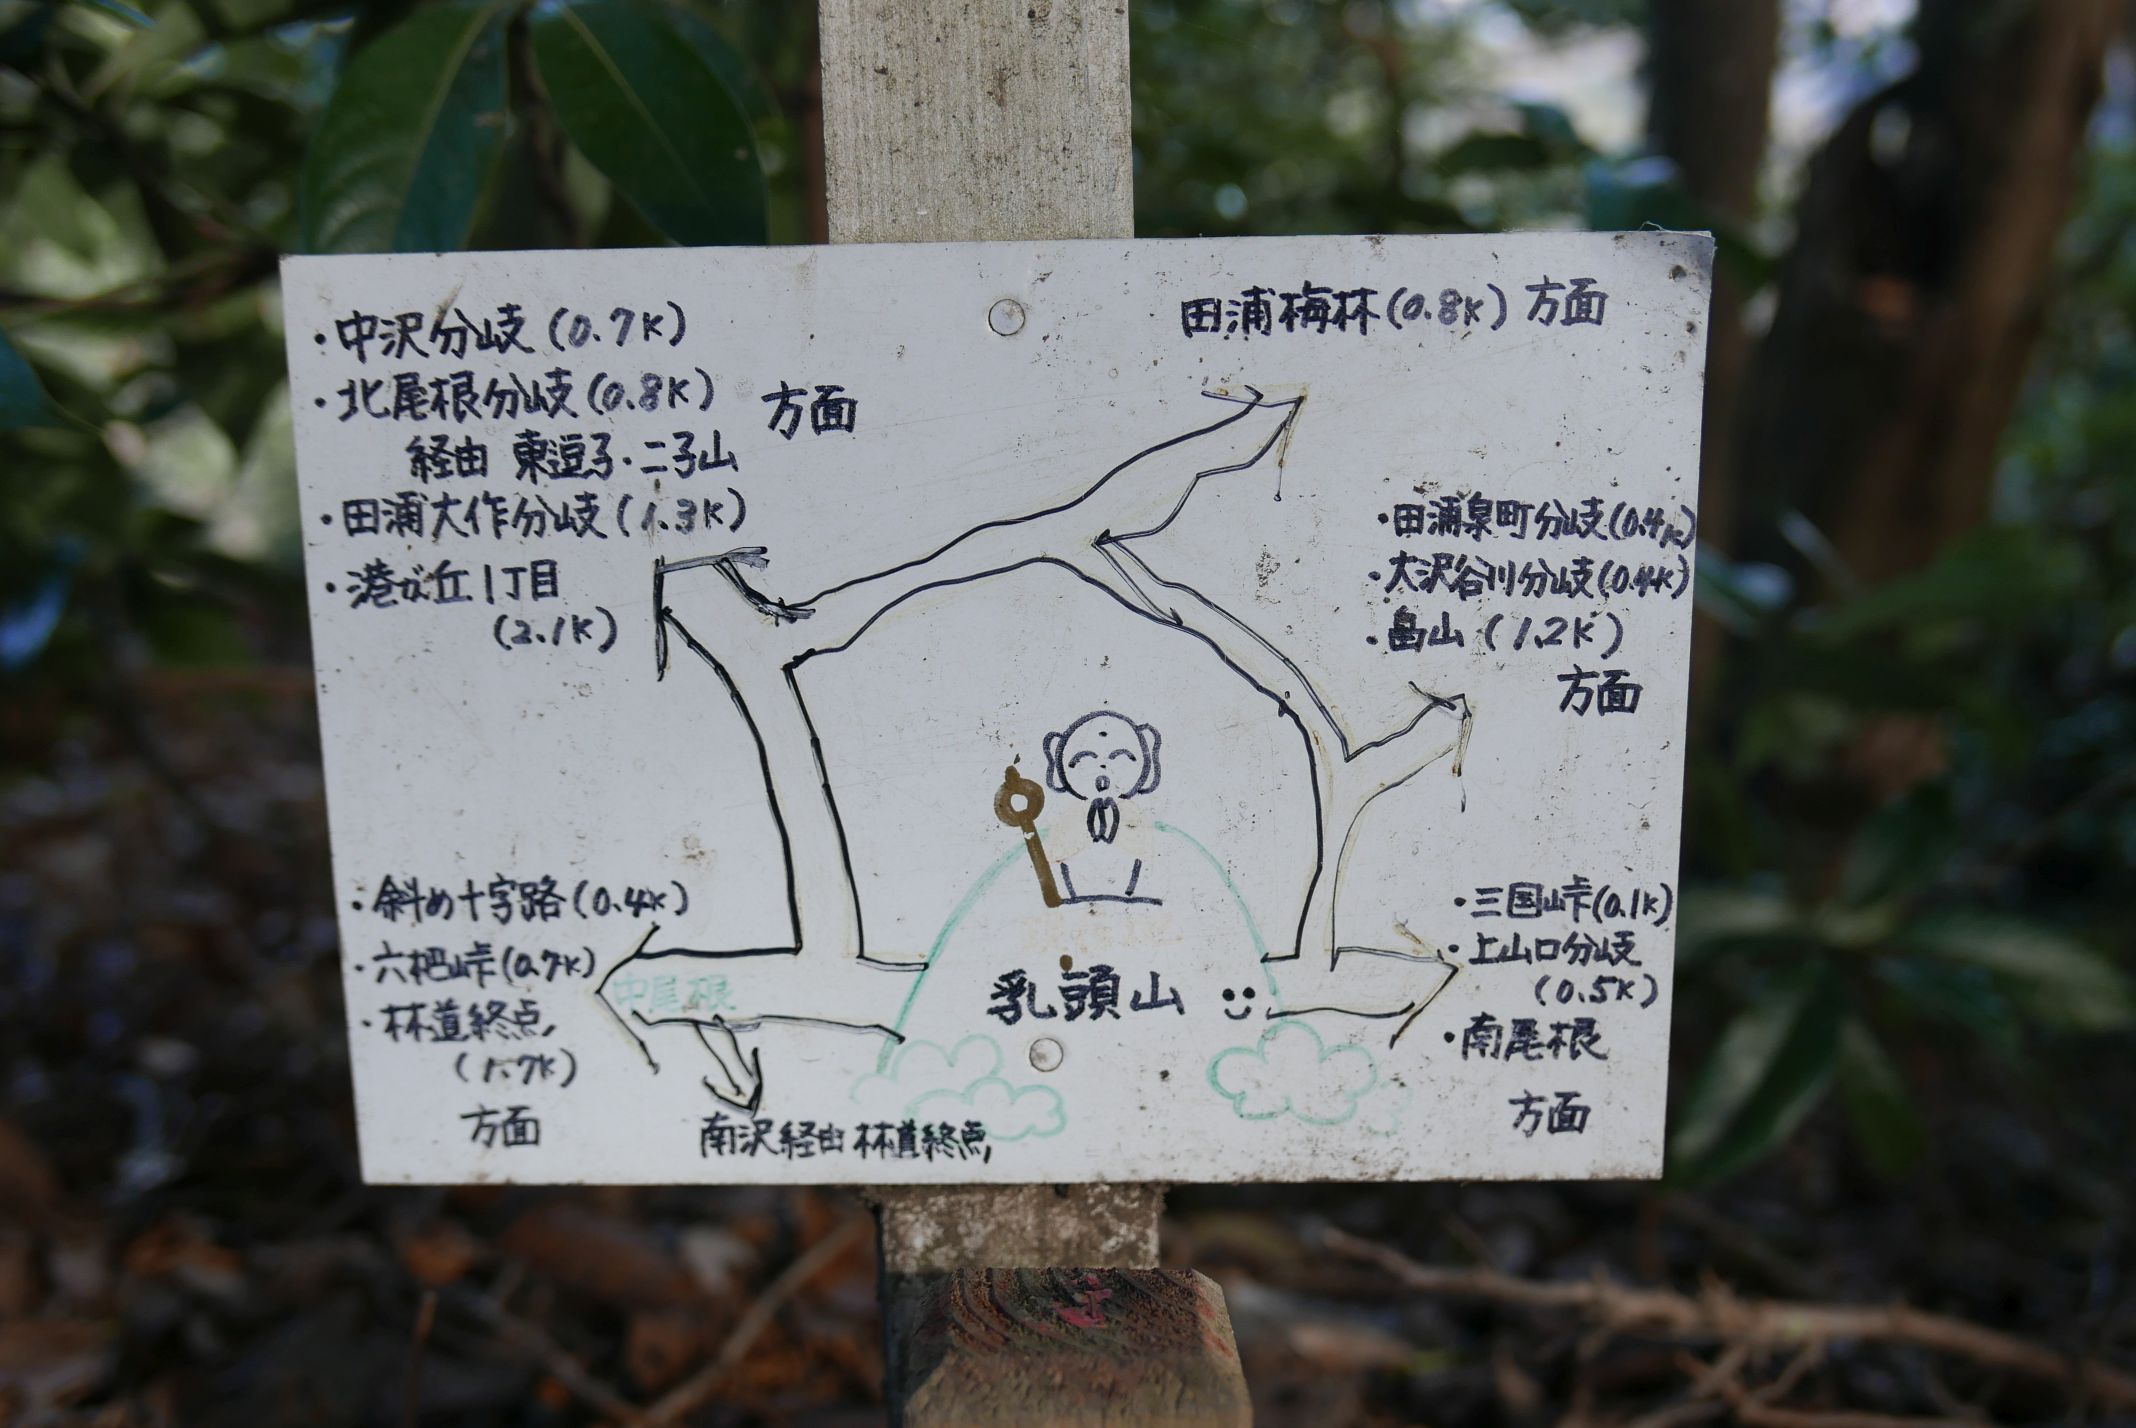 ・中沢分岐(0.7K)
・北尾根分岐(0.8K)
経由 東逗子・二子山
・田浦大作分岐(1.3K)
・港が丘1丁目
(2.1K)
方面
田浦梅林(0.8K)方面
・田浦泉町分岐(0.4K)
・大沢谷川分岐(0.4K)
・畠山(1.2K)
方面
・斜め十字路(0.4K)
・六杷峠(0.7K)
・林道終点
(1.7K)
方面
中尾根
南沢経由林道終点
乳頭山
・三国峠(0.1K)
・上山口分岐
(0.5K)
・南尾根
方面